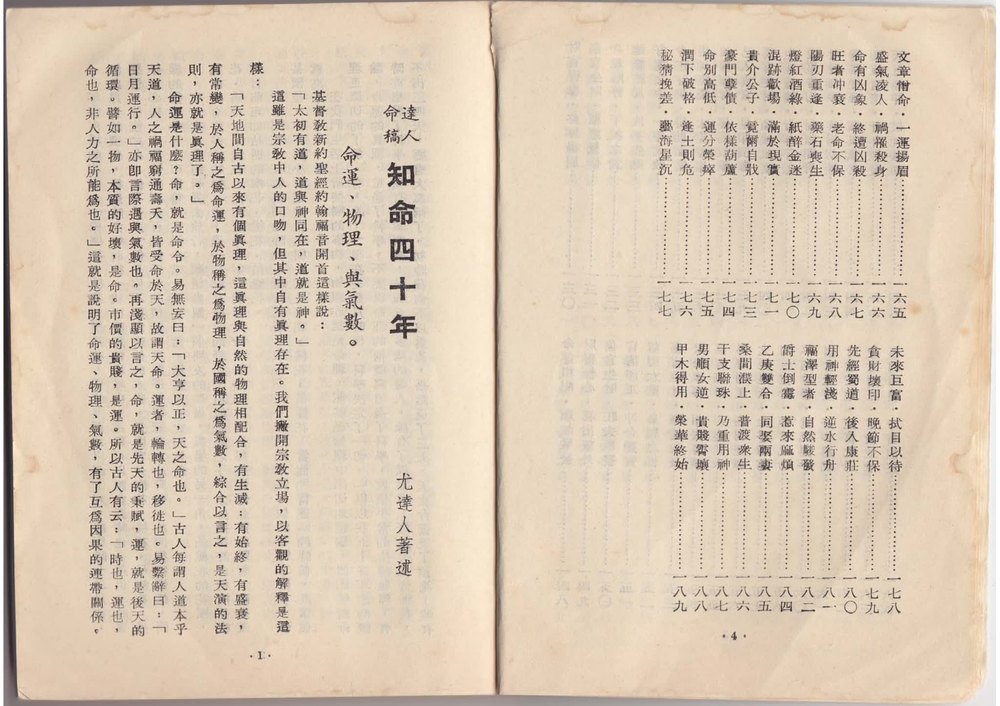 文章憎命・一運揚眉…………一六五
盛氣凌人・禍摧殺身…………一六六
命有凶象・終遭凶殺…………一六七
旺者冲衰・老命不保…………一六八
陽刃重逢・藥石喪生…………一六九
燈紅酒綠・紙醉金迷…………一七〇
混跡歡場・滿於現實…………一七一
貴介公子・竟爾自戕…………一七三
豪門孽債・依樣葫蘆…………一七四
命別高低・運分榮瘁…………一七五
潤下破格・逢土則危…………一七六
秘猜挽差・藝海星沉…………一七七
未來巨富・拭目以待…………一七八
貪財壞印・晚節不保…………一七九
先經蜀道・後入康莊…………一八〇
用神輕淺・逆水行舟…………一八一
福澤型者・自然駿發…………一八二
爵士倒霉・惹來麻煩…………一八四
乙庚雙合・同娶兩妻…………一八五
桑間濮上・普渡衆生…………一八六
干支聯珠・乃重用神…………一八七
男順女逆・貴賤霄壤…………一八八
甲木得用・榮華終始…………一八九
・4・
達人
命稿
知命四十年
尤達人著述
命運、物理、與氣數。
基督敎新約聖經約翰福音開首這樣說：
「太初有道，道與神同在，道就是神。」
道雖是宗敎中人的口吻，但其中自有眞理存在。我們撇開宗敎立場，以客觀的解釋是這
樣：
「天地間自古以來有個眞理，這眞理與自然的物理相配合，有生滅：有始終，有盛衰，
有常變，於人稱之爲命運，於物稱之爲物理，於國稱之爲氣數，綜合以言之，是天演的法
則，亦就是眞理了。」
命運是什麼？命，就是命令。易無妄曰：「大亨以正，天之命也。」古人每謂人道本乎
天道，人之禍福窮通壽夭，皆受命於天，故謂天命。運者，輪轉也，移徙也。易繫辭曰：「
日月運行。」亦卽言際遇與氣數也。再淺顯以言之，命，就是先天的秉賦，運，就是後天的
循環。譬如一物，本質的好壞，是命。市價的貴賤，是運。所以古人有云：「時也，運也，
命也，非人力之所能爲也。」這就是說明了命運、物理、氣數，有了互爲因果的連帶關係。
・1・